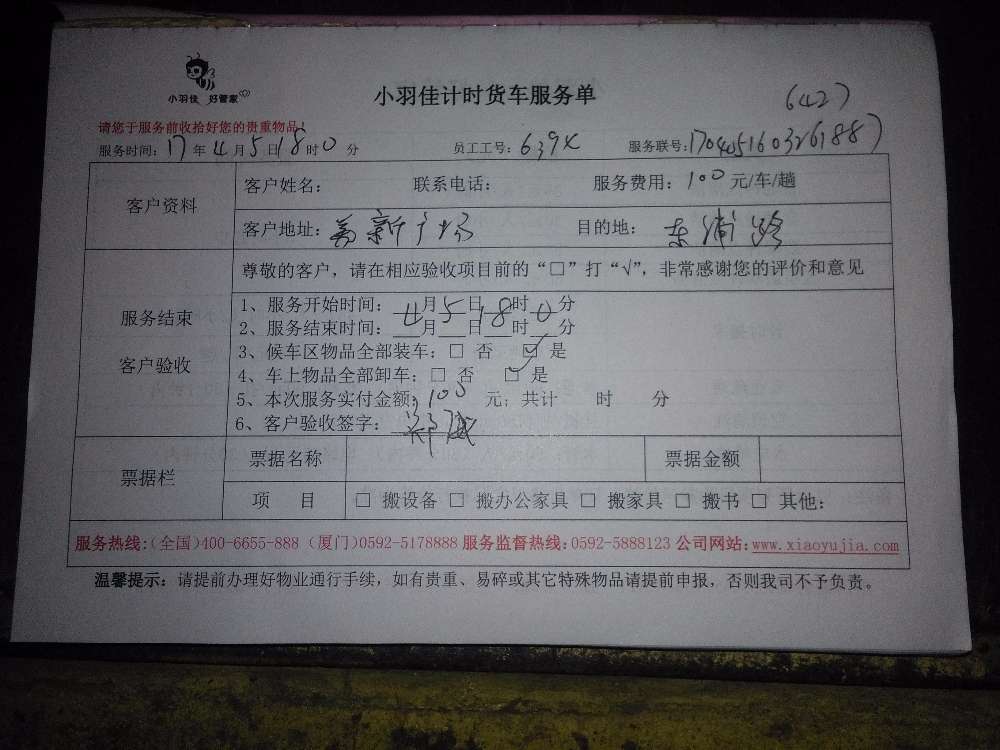 小羽佳 好管家
小羽佳计时货车服务单
(6427)
请您于服务前收拾好您的贵重物品！
服务时间：17年4月5日18时0分 员工工号：639X 服务联号：
客户资料
客户姓名： 联系电话： 服务费用：100元/车/趟
客户地址：新广场 目的地：东浦路
服务结束
客户验收
尊敬的客户，请在相应验收项目前的“□”打“√”，非常感谢您的评价和意见
1、服务开始时间：4月5日18时0分
2、服务结束时间：__月__日__时__分
3、候车区物品全部装车：□ 否 ☑ 是
4、车上物品全部卸车：□ 否 ☑ 是
5、本次服务实付金额：100 元；共计 时 分
6、客户验收签字：
票据栏
票据名称 票据金额
项 目 □ 搬设备 □ 搬办公家具 □ 搬家具 □ 搬书 □ 其他：
服务热线：(全国)400-6655-888 (厦门)0592-5178888 服务监督热线：0592-5888123 公司网站：www.xiaoyujia.com
温馨提示：请提前办理好物业通行手续，如有贵重、易碎或其它特殊物品请提前申报，否则我司不予负责。